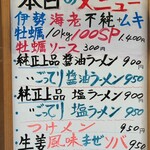 本日のメニュー
伊勢海老不純ムキ
牡蠣10kg 100SP 1,400円
牡蠣ソース 300円
純正上品 醤油ラーメン 900
〃 ごってり 醤油ラーメン 950
純正上品 塩ラーメン 900
〃 ごってり 塩ラーメン 950
つけメン 950円
生姜風味まぜソバ 950